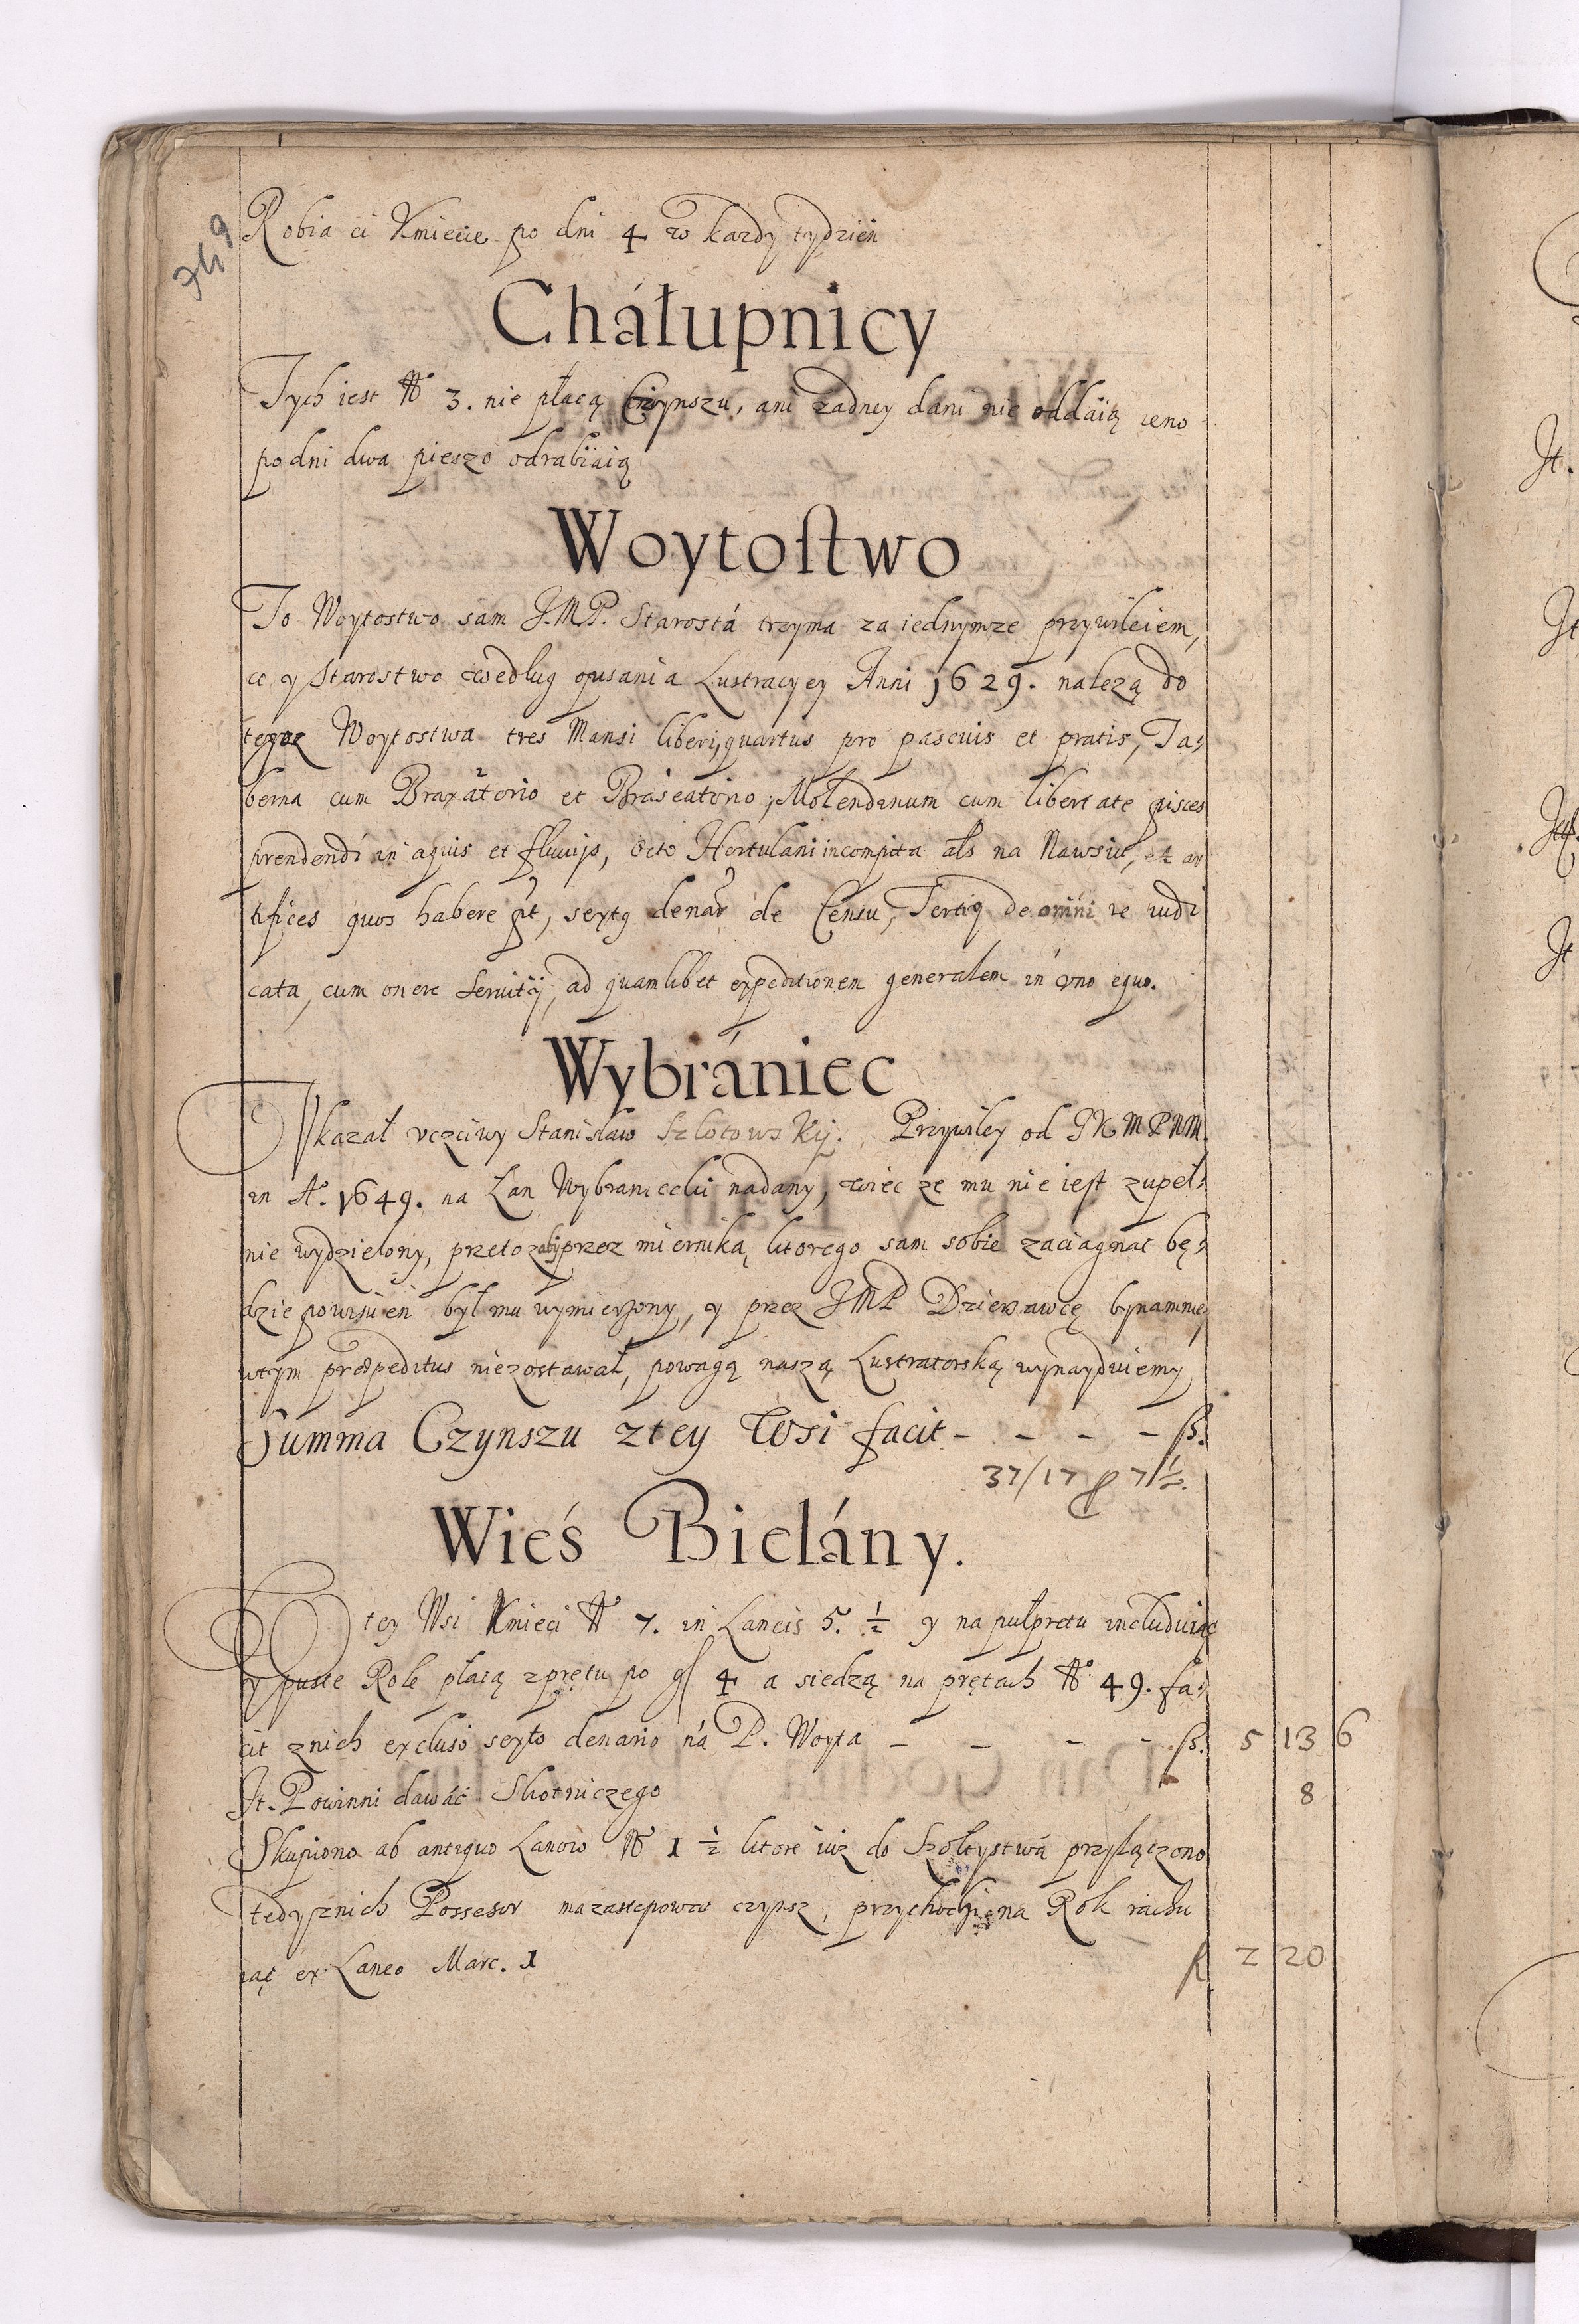 349
Robia ci Kmiecie po dni 4 w kazdy tydzień
Cháłupnicy
Tych iest No 3. nie płacą Czynszu, ani zadney dani nie oddáią ieno
po dni dwa pieszo odrabiáią
Woytostwo
To Woytostwo sam J.M.P. Starostá trzyma za iednymze przywileiem,
co y Starostwo według opisania Lustracyey Anni 1629. nalezą do
tegoz Woytostwa tres Mansi liberi, quartus pro pascuis et pratis, Ta-
berna cum Braxatorio et Braseatorio, Molendinum cum libertate pisces
prendendi in aquis et fluvijs, octo Hortulani in compita als na Nawsiu, et ar
tifices quos habere pt, sexty denar de Censu, Tertiq de omni re iudi
cata, cum onere Seruitij, ad quamlibet expeditionem generalem in vno equo.
Wybrániec
Vkazał vczciwy Stanisław Szlotowskij. Przywiley od JKMPNM.
in Ao. 1649. na Łan Wybraniecki nadany, więc ze mu nie iest zupeł-
nie wydzielony, preto zaby przez miernika, ktorego sam sobie zaciagnąc bę-
dzie powinien był mu wymierzony, y przez JMP Dzierzawcę bynamniey
wtym præpeditus niezostawał, powagą naszą Lustratorską wynayduiemy
Summa Czynszu z tey Wsi facit - - - - f.
37/17 7 1/2.
Wieś Bielány.
W tey Wsi Kmieci No 7. in Laneis 5. 1/2 y na puł pretu includuiąc
y puste Role płacą z prętu po g 4 a siedzą na prętach No 49. fa-
cit znich excluso sexto denario ná P. Woyta - - - - f. 5 13 6
It. Powinni dawáć Skotniczego 8
Skupiono ab antiquo Lanow No 1 1/2 ktore iuz do Szołtystwá przyłączono
tedy znich Possesor ma zastepowac czynsz, przychodzi na Rok rachu
iąc ex Laneo Marc. 1 f 2 20